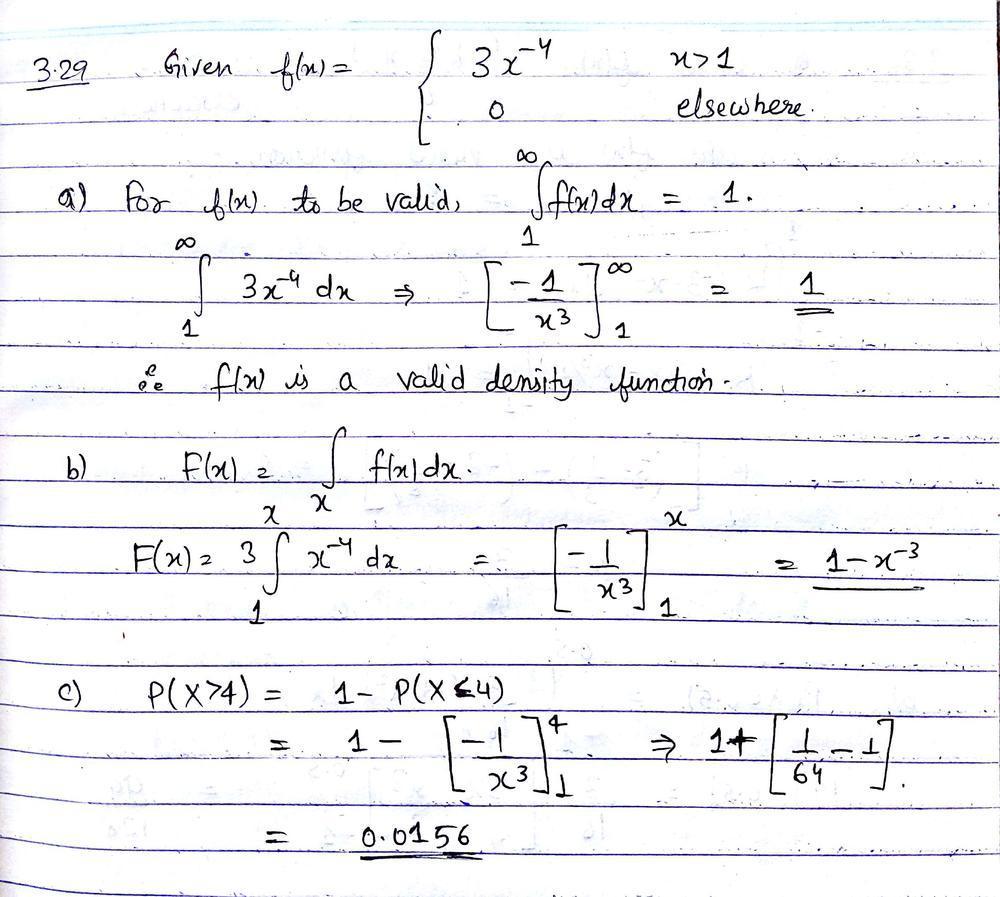 3.29 Given f(x) = { 3x⁻⁴ x>1
0 elsewhere.
a) For f(x) to be valid, ∫₁^∞ f(x) dx = 1.
∫₁^∞ 3x⁻⁴ dx ⇒ [-1/x³]₁^∞ = 1
∴ f(x) is a valid density function.
b) F(x) = ∫ₓ f(x) dx.
F(x) = 3 ∫₁^x x⁻⁴ dx = [-1/x³]₁^x = 1-x⁻³
c) P(X>4) = 1- P(X≤4)
= 1 - [-1/x³]₁^4 ⇒ 1+ [1/64 - 1].
= 0.0156